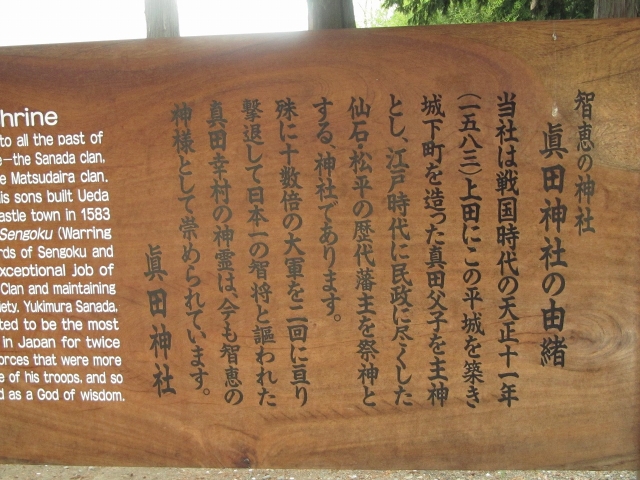 智恵の神社
眞田神社の由緒
当社は戦国時代の天正十一年
(一五八三)上田にこの平城を築き
城下町を造った真田父子を主神
とし、江戸時代に民政に尽くした
仙石・松平の歴代藩主を祭神と
する、神社であります。
殊に十数倍の大軍を二回に亘り
撃退して日本一の智将と謳われた
真田幸村の神霊は、今も智恵の
神様として崇められています。
眞田神社
hrine
to all the past of
e-the Sanada clan,
e Matsudaira clan.
is sons built Ueda
astle town in 1583
Sengoku (Warring
rds of Sengoku and
xceptional Job of
Clan and maintaining
iety. Yukimura Sanada,
ted to be the most
in Japan for twice
orces that were more
e of his troops, and so
d as a God of wisdom.